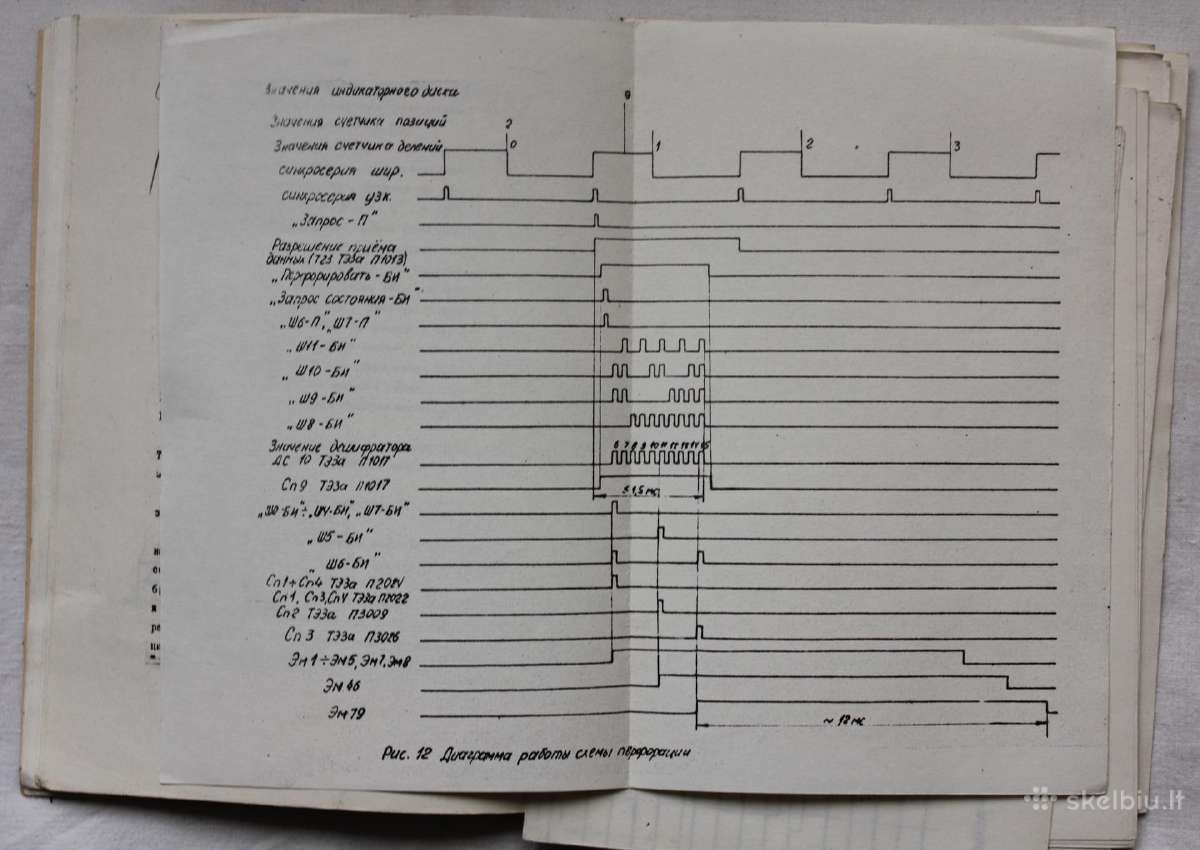 Значения индикаторного диска
9
Значения счетчика позиций 2
Значения счетчика делений 0 1 2 3
синхросерия шир.
синхросерия узк.
„Запрос - П"
Разрешение приёма
данных (Т23 ТЭЗа П1013)
„Перфорировать - БИ"
„Запрос состояния - БИ"
„Ш6-П", „Ш7-П"
„Ш11-БИ"
„Ш10-БИ"
„Ш9-БИ"
„Ш8-БИ"
Значение дешифратора 6 7 8 9 10 11 12 13 14 15
ДС 10 ТЭЗа П1017
Сп9 ТЭЗа П1017
≤1,5 мс
„Ш0-БИ"÷„Ш4-БИ", „Ш7-БИ"
„Ш5-БИ"
„Ш6-БИ"
Сп1÷Сп4 ТЭЗа П2021
Сп1, Сп3, Сп4 ТЭЗа П2022
Сп2 ТЭЗа П3009
Сп 3 ТЭЗа П3026
Эм1÷Эм5, Эм7, Эм8
Эм 46
Эм 79
~ 12 мс
Рис. 12 Диаграмма работы схемы перфорации
skelbiu.lt